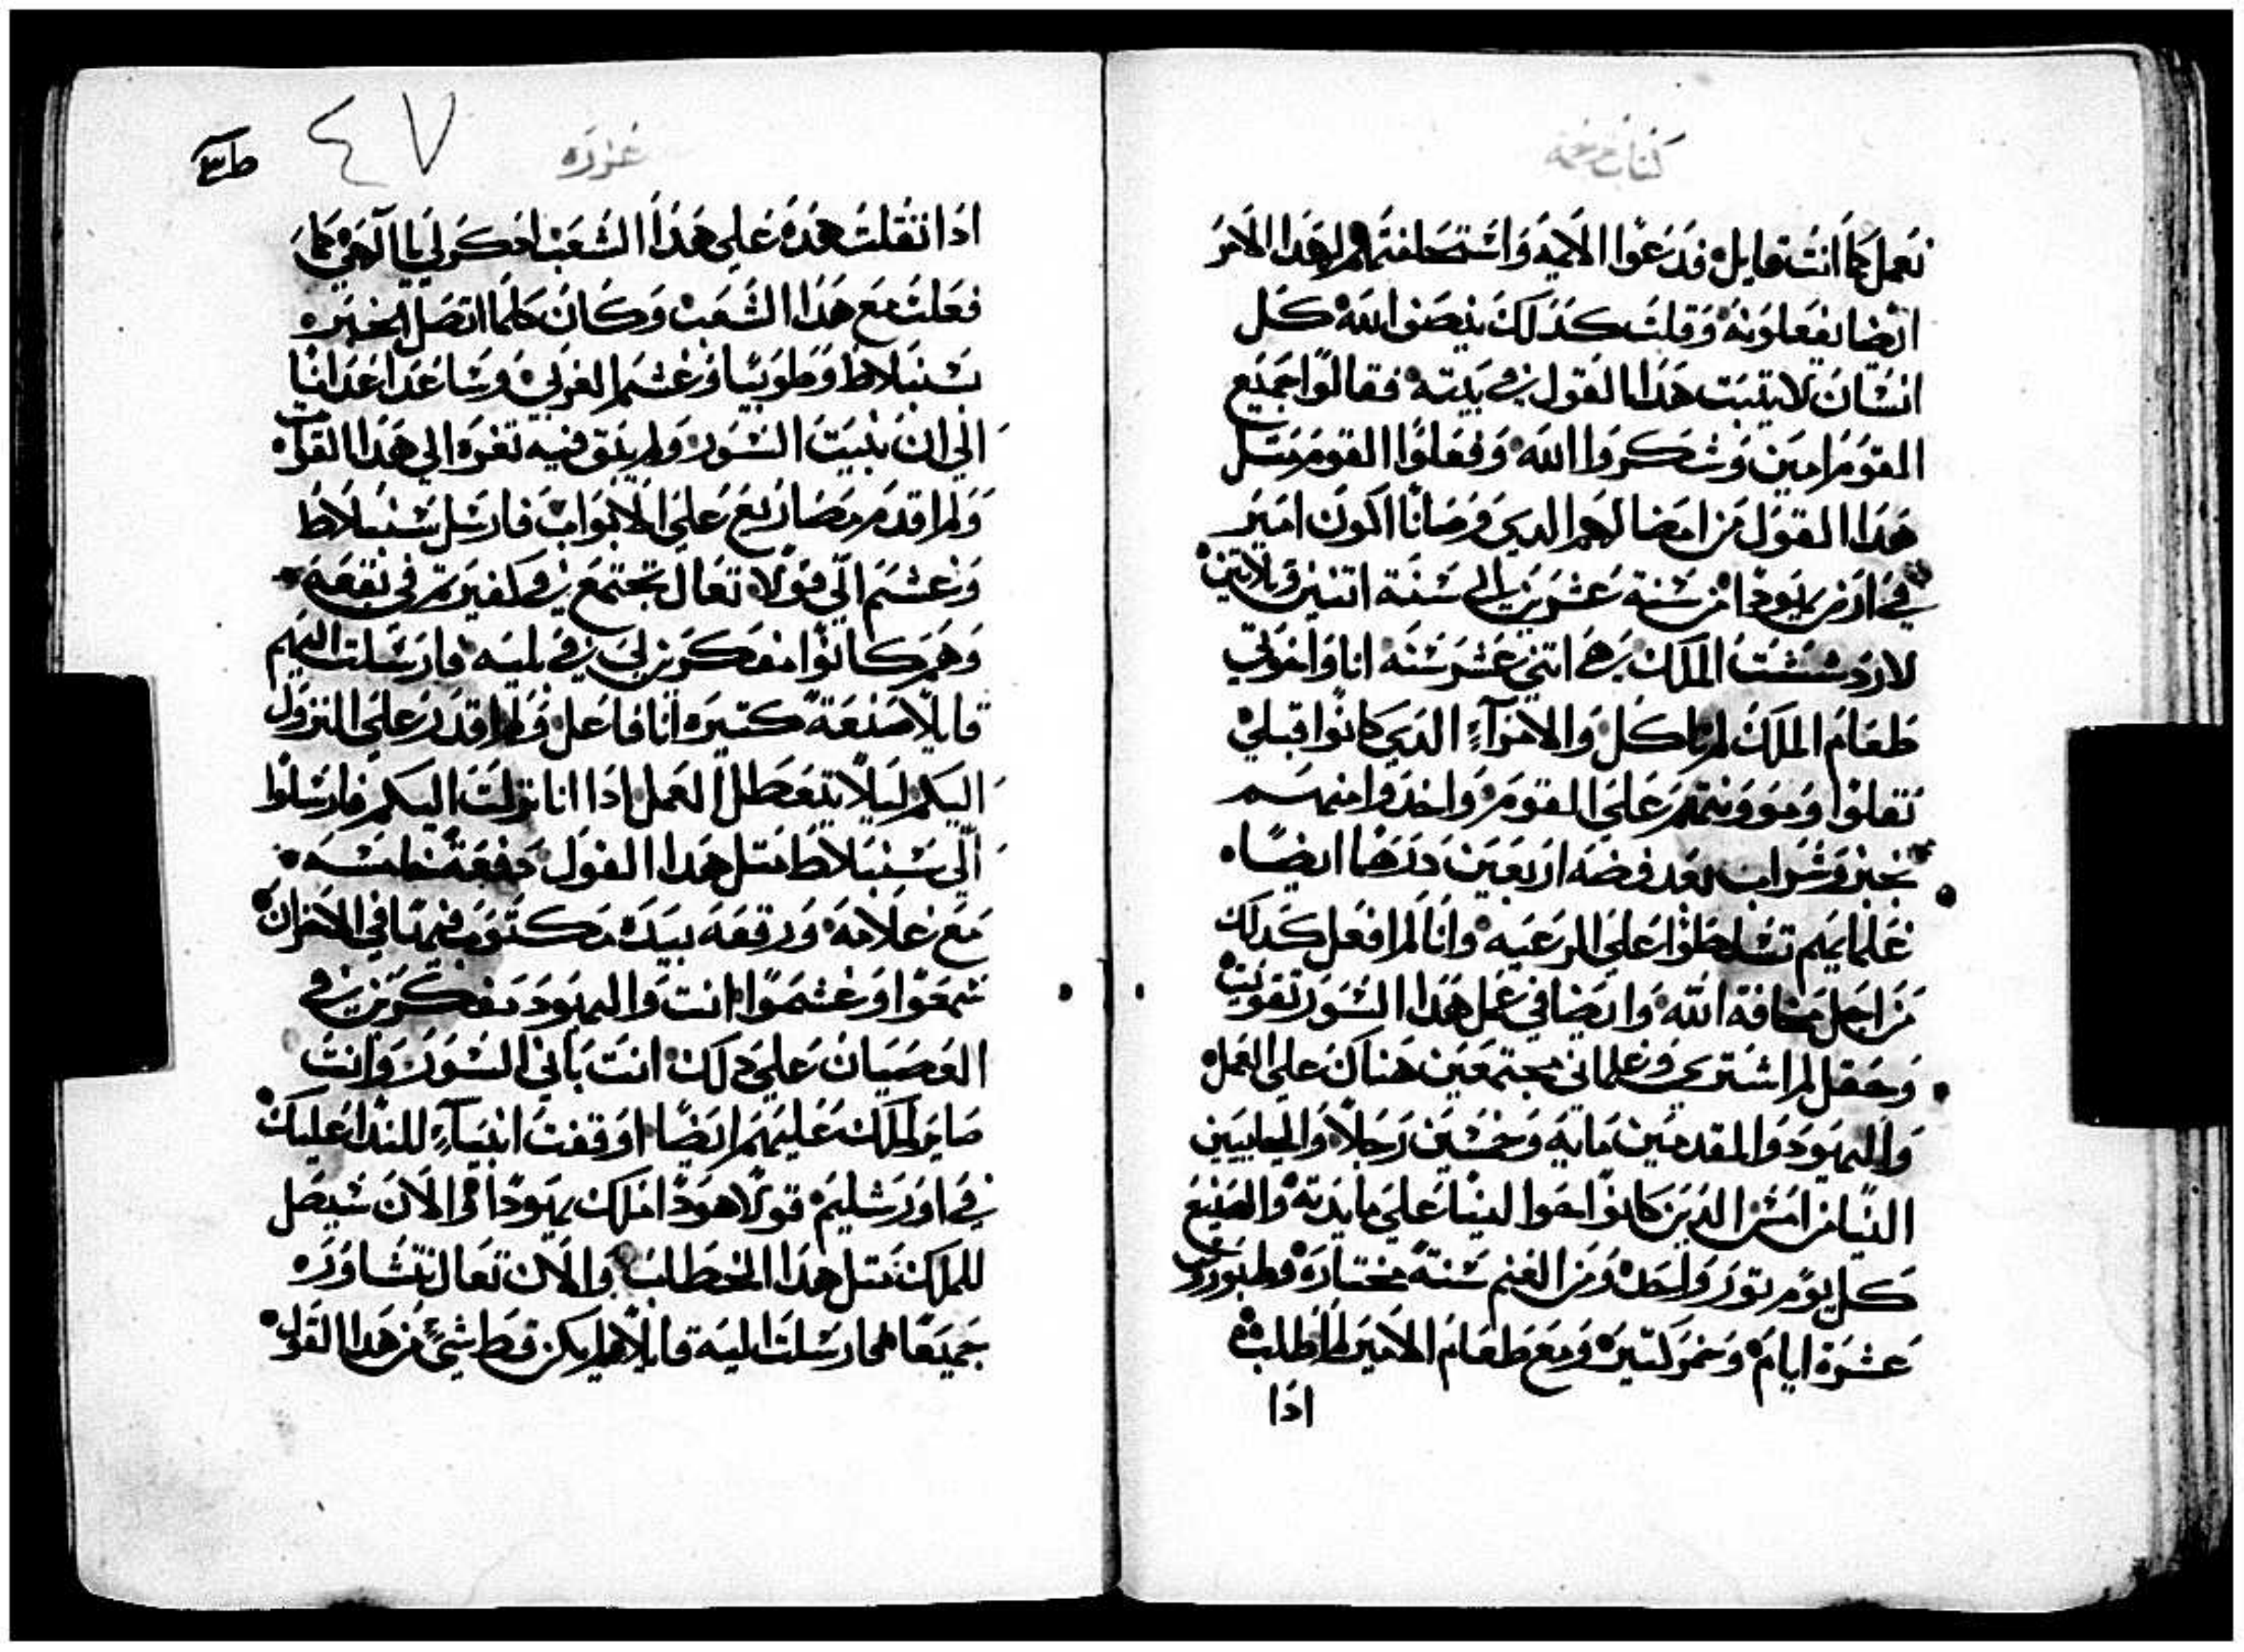 نعمل كما انت قايل فدعوا الايمه واستحلفتهم لهدا الامر
ايضا يفعلونه وقلت كدلك ينصوا الله كل
انسان لا يتبت هدا القول في بيته فقالوا جميع
القوم امين وشكروا الله وفعلوا القوم متل
هدا القول من امضا لهم الدي فرضانا اكون امير
في ارض يهودا من سنة عشرين الي سنة اتنين وتلاتين
لاردششت الملك هي اتني عشر سنه انا واخوتي
طعام الملك لم ناكل والامرآء الدي كانوا قبلي
تقلوا نيرهم علي القوم واخدوا منهم
بخبز وشراب بعد فضه اربعين درهما ايضا
غلمانهم تسلطوا علي الرعيه وانا لم افعل كدلك
من اجل مخافة الله وايضا في عمل هدا السور تقويت
وحقل لم اشتري وغلماني مجتمعين هناك علي العمل
واليهود والمقدمين مايه وخمسين رجلا والجاييين
الينا من الامم الدين كانوا الينا علي مايدته والصنيع
كل يوم تور واحد ومن الغنم ستة مختاره وطيور وفي
عشرة ايام وخمر كتيره ومع طعام الامير لم اطلب
ادا
غزره
٤٧
ادا تقلت هده علي هدا الشعب ادكر لي يا الهي كما
فعلت مع هدا الشعب وكان كلما اتصل الخبر
سنبلاط وطوبيا وغشم الغربي وساعدا اعدانا
اني ان بنيت السور ولم يبق فيه تغره الي هدا القول
ولم اقدم مصاريع علي الابواب فارسل سنبلاط
وغشم الّي قولا تعال نجتمع في كفيريم في بقعه
وهم كانوا مفكرين لي في بليه فارسلت اليهم
قايلا صنعة كتيره انا فاعل ولم اقدر علي النزول
اليكم ليلا يتعطل العمل ادا انا نزلت اليكم فارسلوا
الّي سنبلاط متل هدا القول دفعة خامسه
مع غلامه ورقعه بيده مكتوب فيها في الاحزان
سمعوا وغشموا انت واليهود مفكرين في
العصيان علي دلك انت باني السور وانت
صاير لملك عليهم ايضا اوقفت انبياء للندا عليك
في اورشليم قولا هودا ملك يهودا والان سيصل
للملك متل هدا الخطاب والان تعال نتشاور
جميعا فارسلت اليه قايلا لم يكن قط شيء من هدا القول